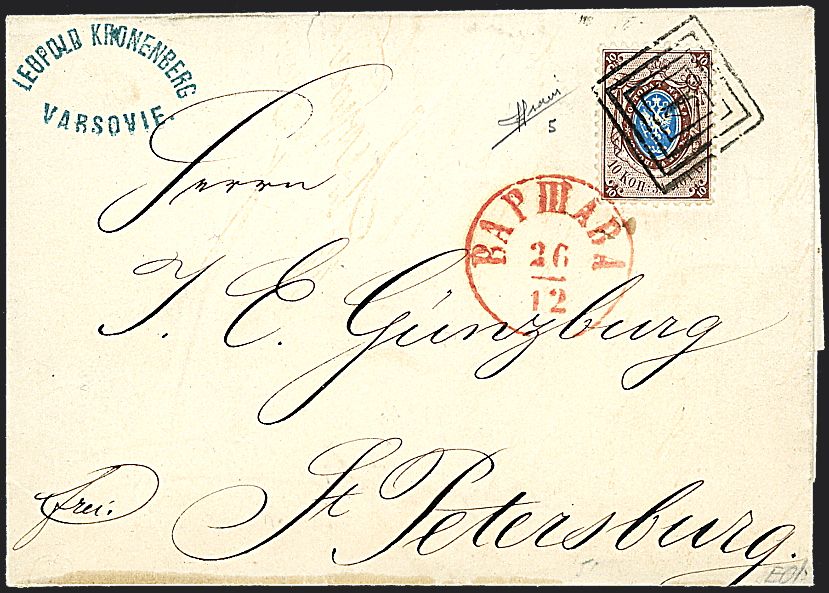 LEOPOLD KRONENBERG
VARSOVIE.
5
10 КОП.
ВАРШАВА
26
12
Herrn
J. E. Günzburg
frei:
St Petersburg.